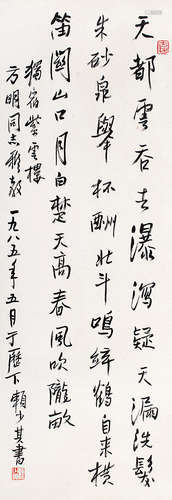 天都雲谷去瀑瀉疑天漏洗髮
朱砂泉舉杯酬北斗鳴絃鶴自来橫
笛關山口月白楚天高春風吹隴畝
獨宿紫雲樓
方明同志雅教 一九八五年五月于歷下賴少其書